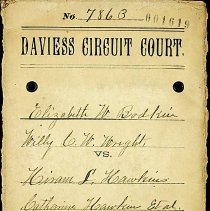 No. 7863 001619
DAVIESS CIRCUIT COURT.
Elizabeth W. Bodkin
Willy C. W. Wright
VS.
Hiram L. Hawkins
Catharine Hawkins Et al.